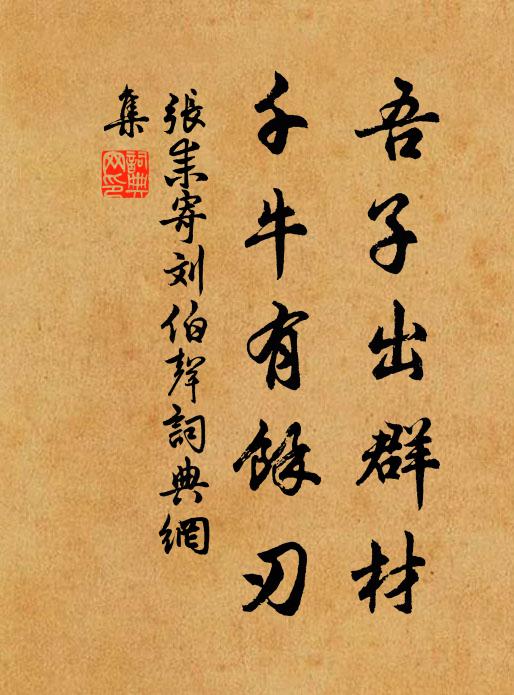 吾子出群材
千牛有餘刃
張耒寄刘伯聲詞典網
集
詞典
网印